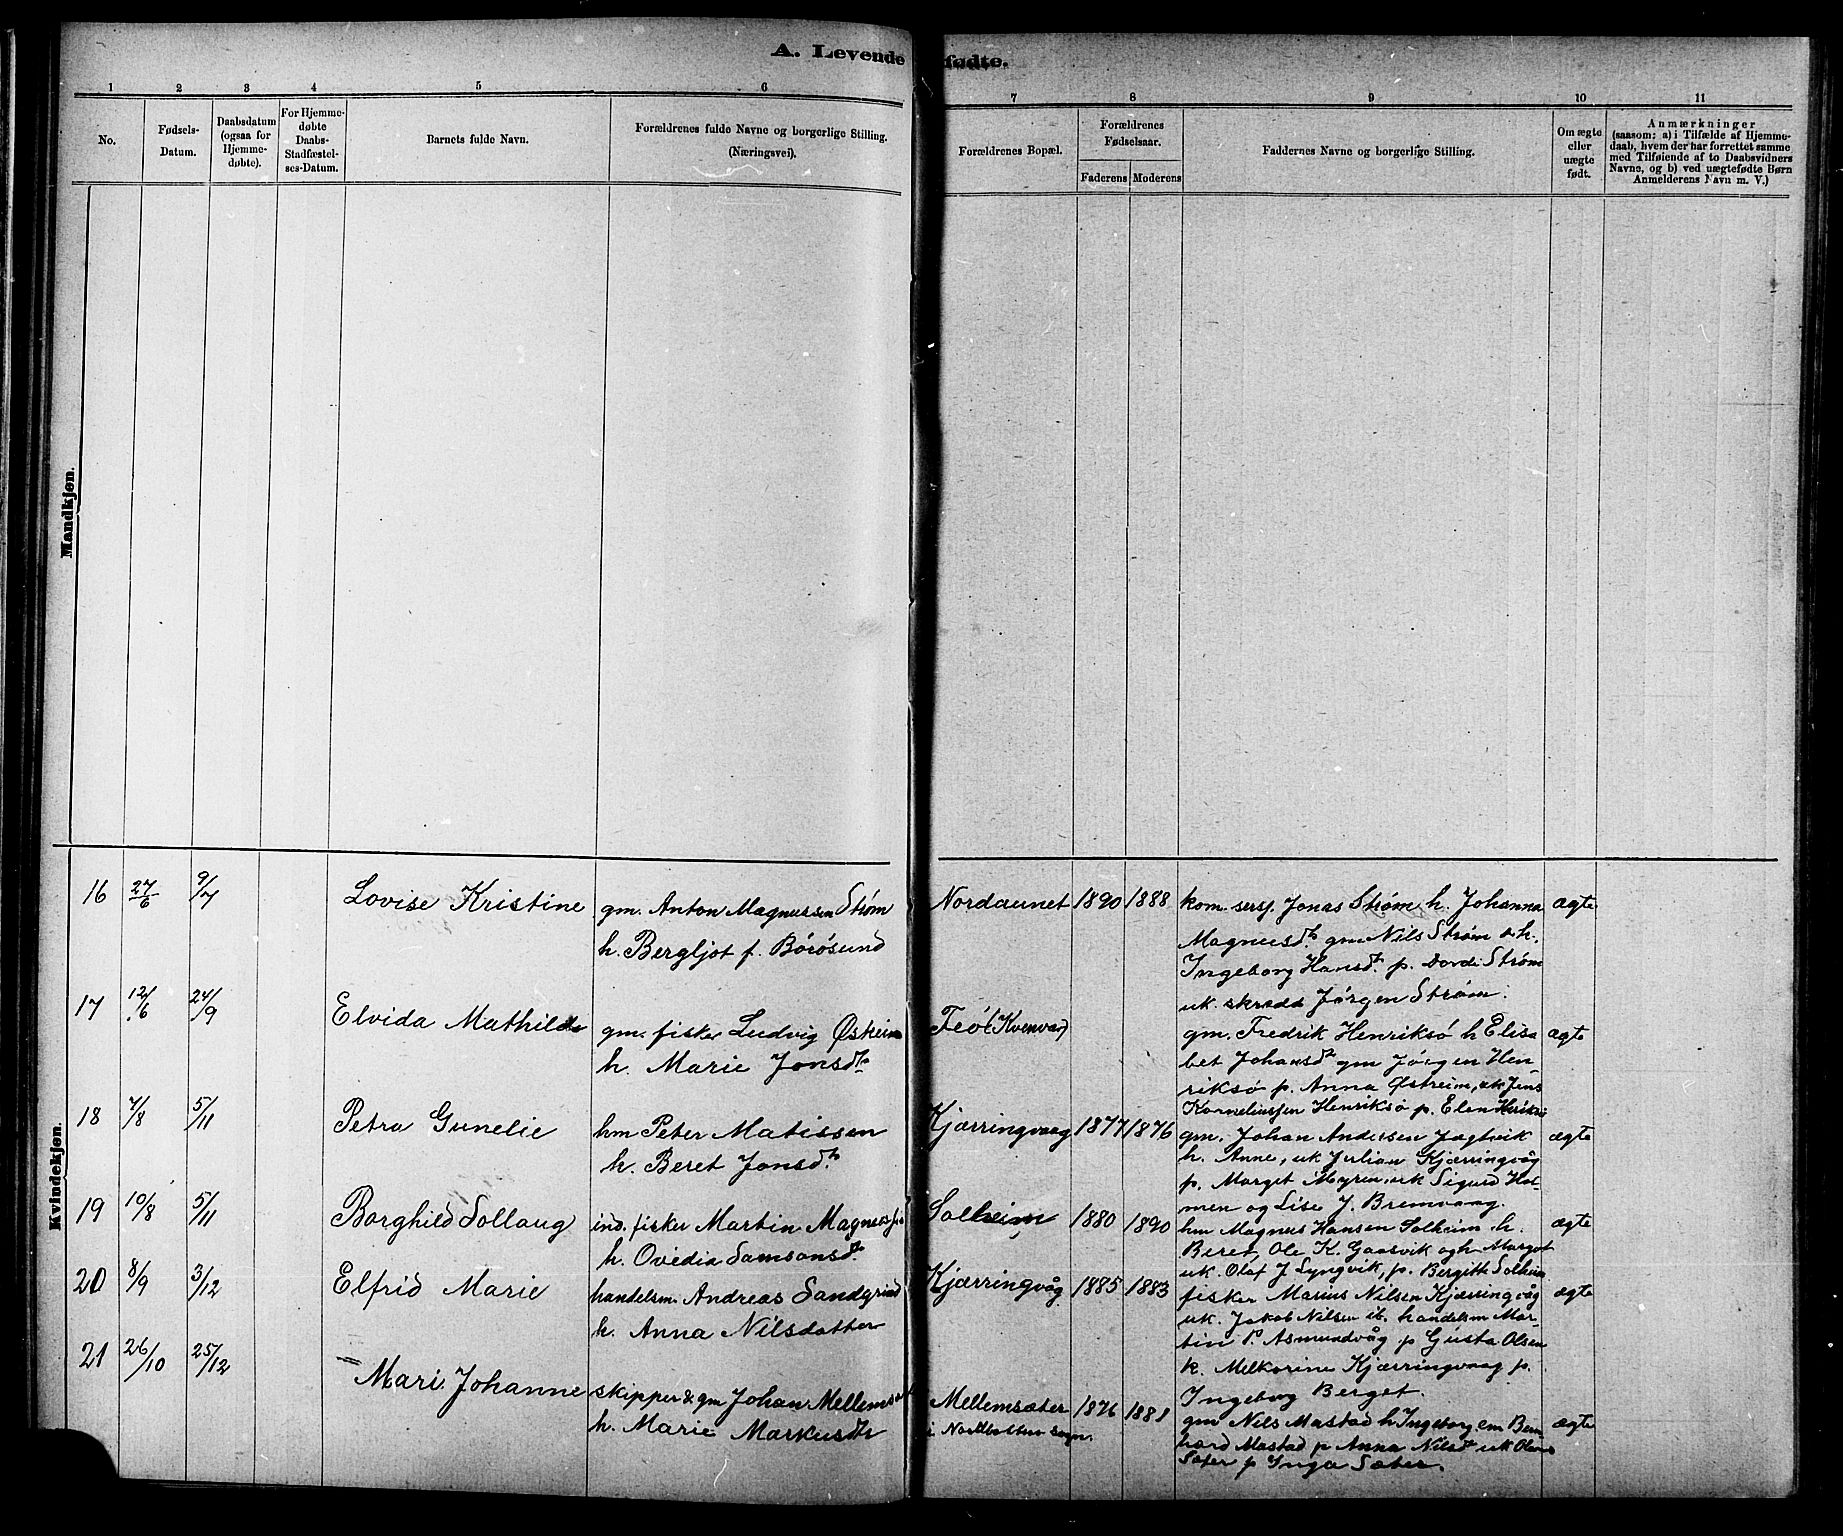 A. Levende fødte.
1 2 3 4 5 6 7 8 9 10 11
No.
Fødsels-
Datum.
Daabsdatum
(ogsaa for
Hjemme-
døbte).
For Hjemme-
døbte
Daabs-
Stadfæstel-
ses-Datum.
Barnets fulde Navn.
Forældrenes fulde Navne og borgerlige Stilling.
(Næringsvei).
Forældrenes Bopæl.
Forældrenes
Fødselsaar.
Faderens Moderens
Faddernes Navne og borgerlige Stilling.
Om ægte
eller
uægte
født.
Anmærkninger
(saasom; a) i Tilfælde af Hjemme-
daab, hvem der har forrettet samme
med Tilføiende af to Daabsvidners
Navne, og b) ved uægtefødte Børn
Anmelderens Navn m. V.)
Mandkjøn.
Kvindekjøn.
16 27/6 9/7 Lovise Kristine
gm. Anton Magnussen Strøm
h. Bergljot f. Börösund
Nordaunet 1890 1888
kom. sersj. Jonas Strøm h. Johanna
Magnusdt. gm Nils Strøm o h.
Ingeborg Hansdt. p. Dordi Strøm
uk. skredd Jørgen Strøm.
ægte
17 12/6 24/9 Elvida Mathilde
gm. fisker Ludvig Østeim
h. Marie Jonsdt.
Feö (Kvenvær)
gm. Fredrik Henriksø h Elisa
bet Johansdt gm Jørgen Hen-
riksø p. Anna Østreim, uk Jens
Korneliussen Henriksø p. Elen Henriksø
ægte
18 7/8 5/11 Petra Gunelie
hm Peter Matissen
h. Beret Jonsdt.
Kjærringvaag 1877 1876
gm. Johan Andersen Jagtvik
h. Anne, uk Julian Kjærringvåg
p. Marget Myren, uk Sigurd Hol-
men og Lise J. Bremvaag.
ægte
19 10/8 5/11 Borghild Sollaug
ind. fisker Martin Magnus
h. Ovedia Samsonsdt.
Solheim 1880 1890
hm Magnus Hansen Solheim h.
Beret, Ole K. Gaasvik og h Margot
uk. Olaf J Lyngvik, p. Bergitte Solheim
ægte
20 8/9 3/12 Elfrid Marie
handelsm. Andreas Sandgrind
h. Anna Nilsdatter
Kjærringvåg 1885 1883
fisker Marius Nilsen Kjærringvåg
uk. Jakob Nilsen ib. handelsm Mar-
tin P. Asmundvåg p Gusta Olsen
k. Melkorine Kjærringvaag p.
Ingeborg Berget.
ægte
21 26/10 25/12 Mari Johanne
skipper & gm Johan Mellemsæt
h. Marie Markusdt
Mellemsæter
i Nordbotten sogn.
1876 1881
gm Nils Mastad h Ingeborg em Bern
hard Mastad p Anna Nilsdt uk Olaus
Sæter p Inga Sæter.
ægte